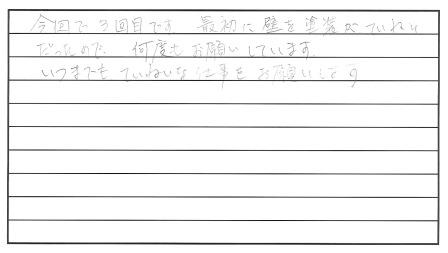 今回で3回目です 最初に壁を塗装がていねい
だったので、何度もお願いしています。
いつまでもていねいな仕事をお願いします